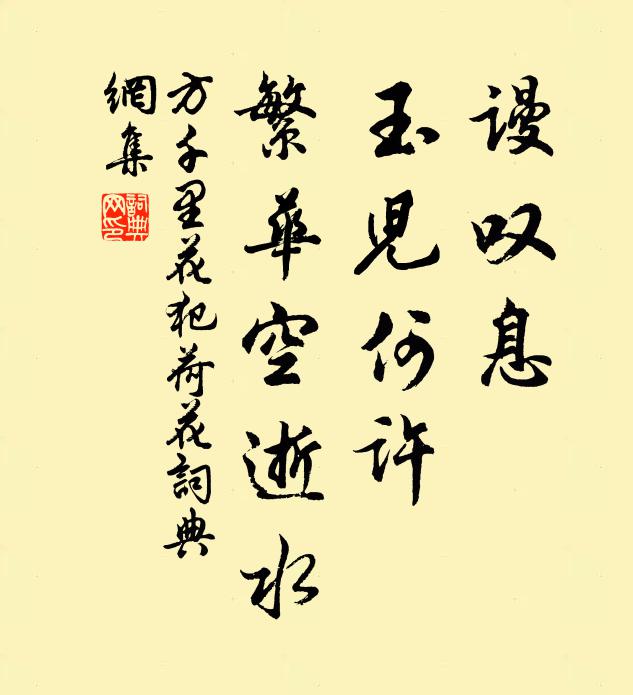 謾叹息
玉児何许
繁華空逝水
方千里花犯荷花詞典
網集
詞典
网印